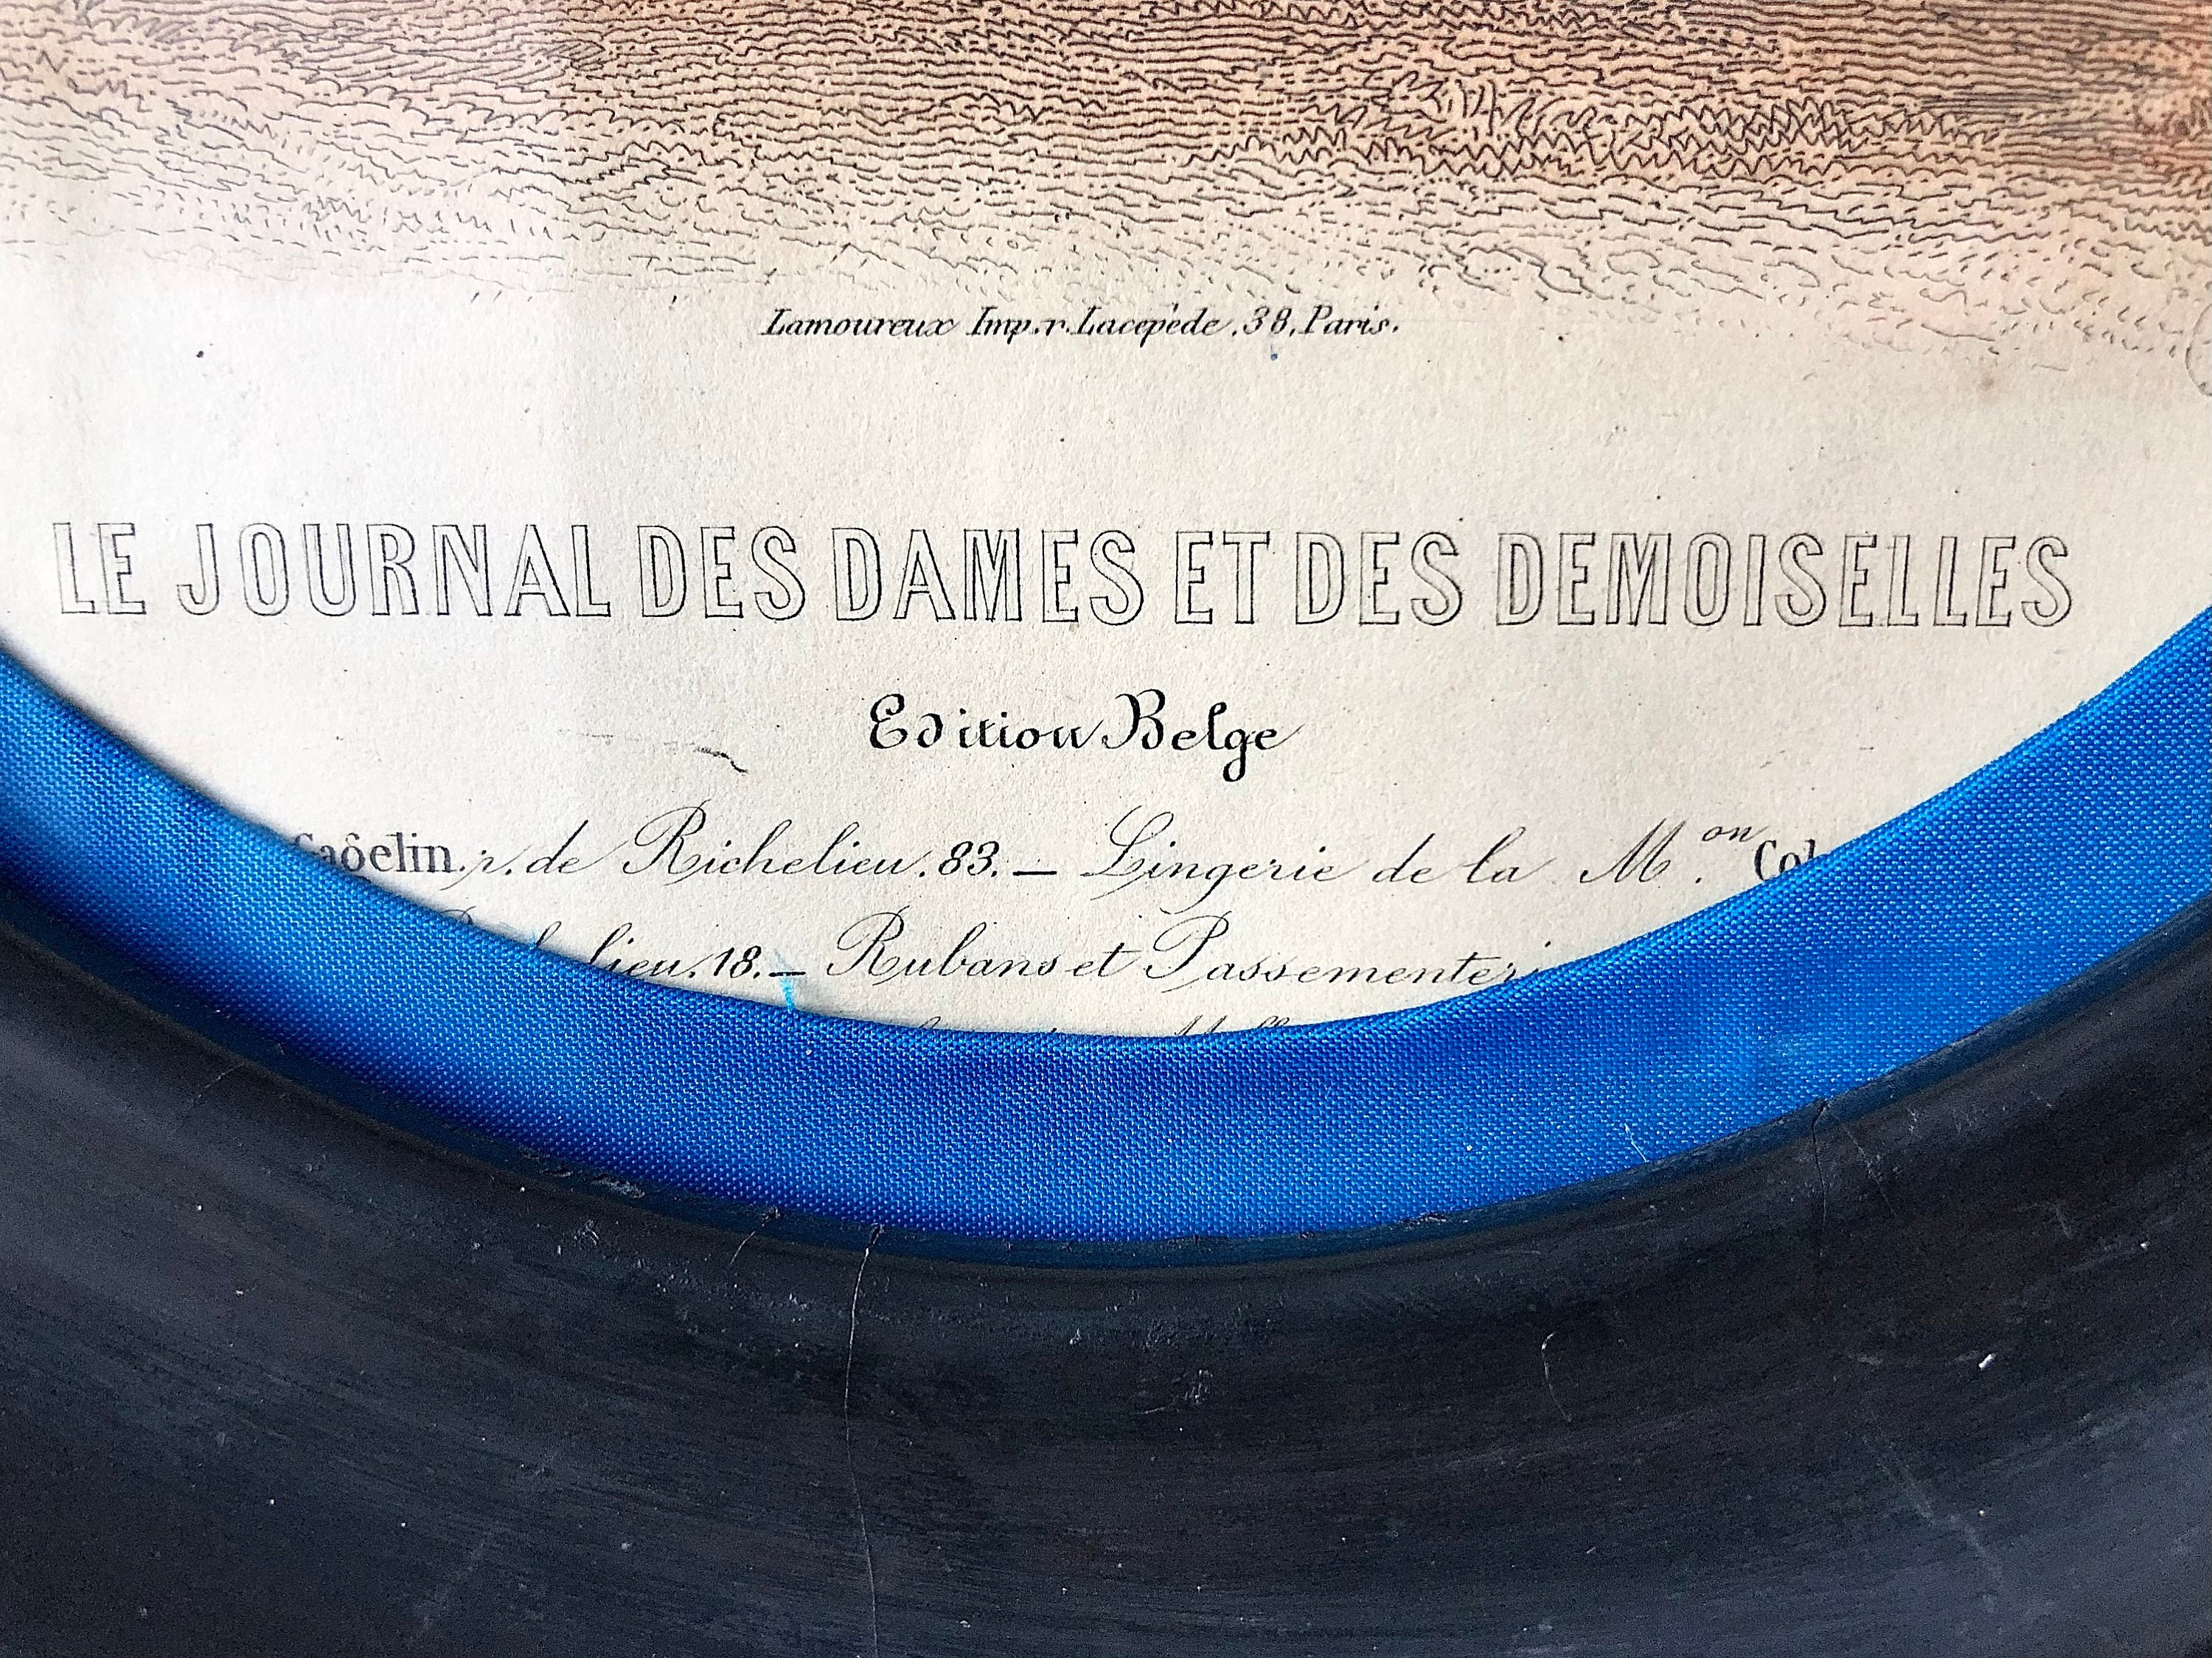 Lamoureux Imp. r. Lacepède, 38, Paris.
LE JOURNAL DES DAMES ET DES DEMOISELLES
Edition Belge
r. de Richelieu. 83. — Lingerie de la M.on
18. — Rubans et